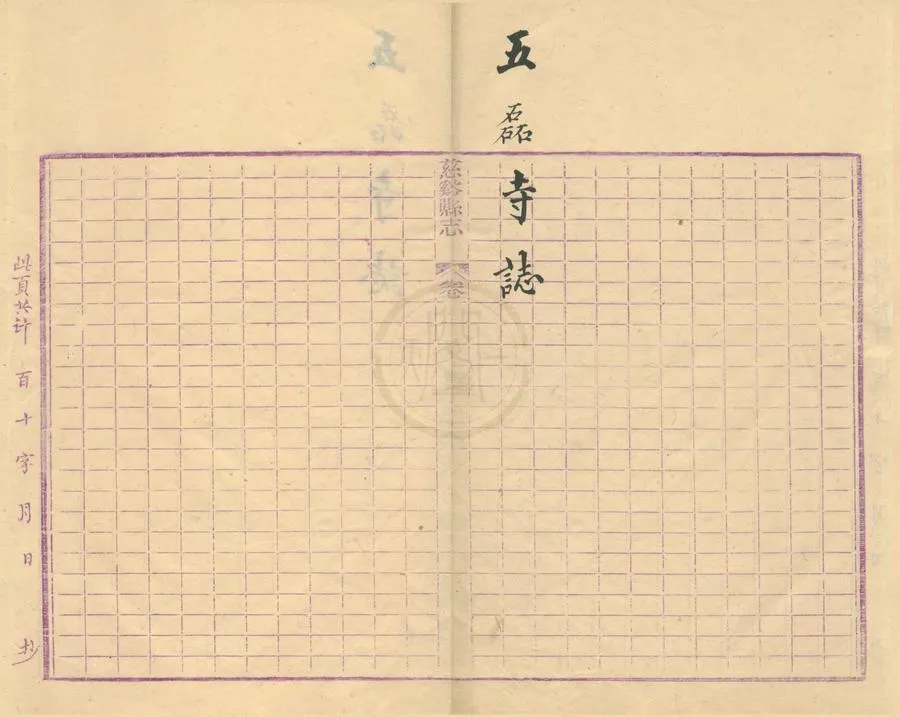 五磊寺誌
慈谿縣志 卷
此頁共計 百 十 字 月 日 抄